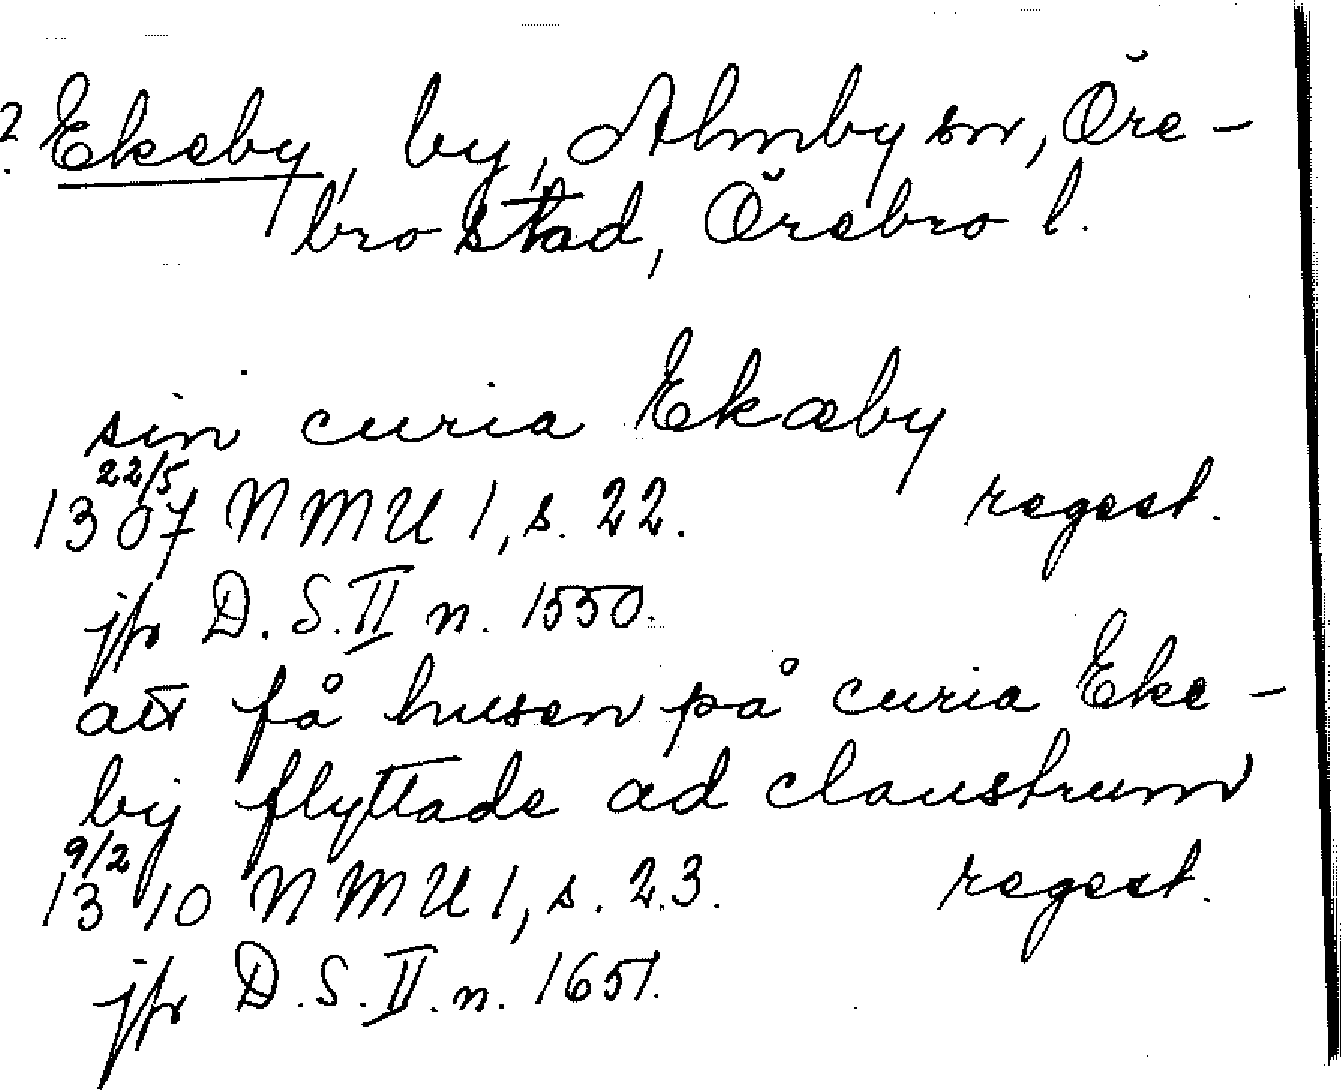 ? Ekeby, by, Almby sn, Öre-
bro stad, Örebro l.
sin curia Ekæby
22/5
1307 NMU 1, s. 22. regest.
jfr D. S. II n. 1550.
att få husen på curia Eke-
by flyttade ad claustrum
9/2
1310 NMU 1, s. 23. regest.
jfr D. S. II. n. 1651.